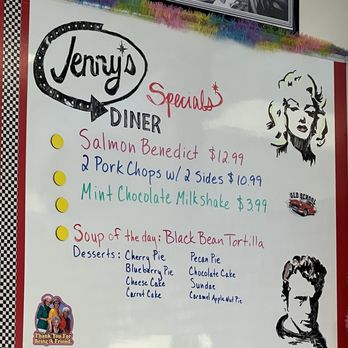 Jenny's
DINER
Specials
Salmon Benedict $12.99
2 Pork Chops w/ 2 Sides $10.99
Mint Chocolate Milkshake $3.99
OLD SCHOOL
Soup of the day: Black Bean Tortilla
Desserts: Cherry Pie Pecan Pie
Blueberry Pie Chocolate Cake
Cheese Cake Sundae
Carrot Cake Caramel Apple Nut Pie
Thank You For
Being A Friend